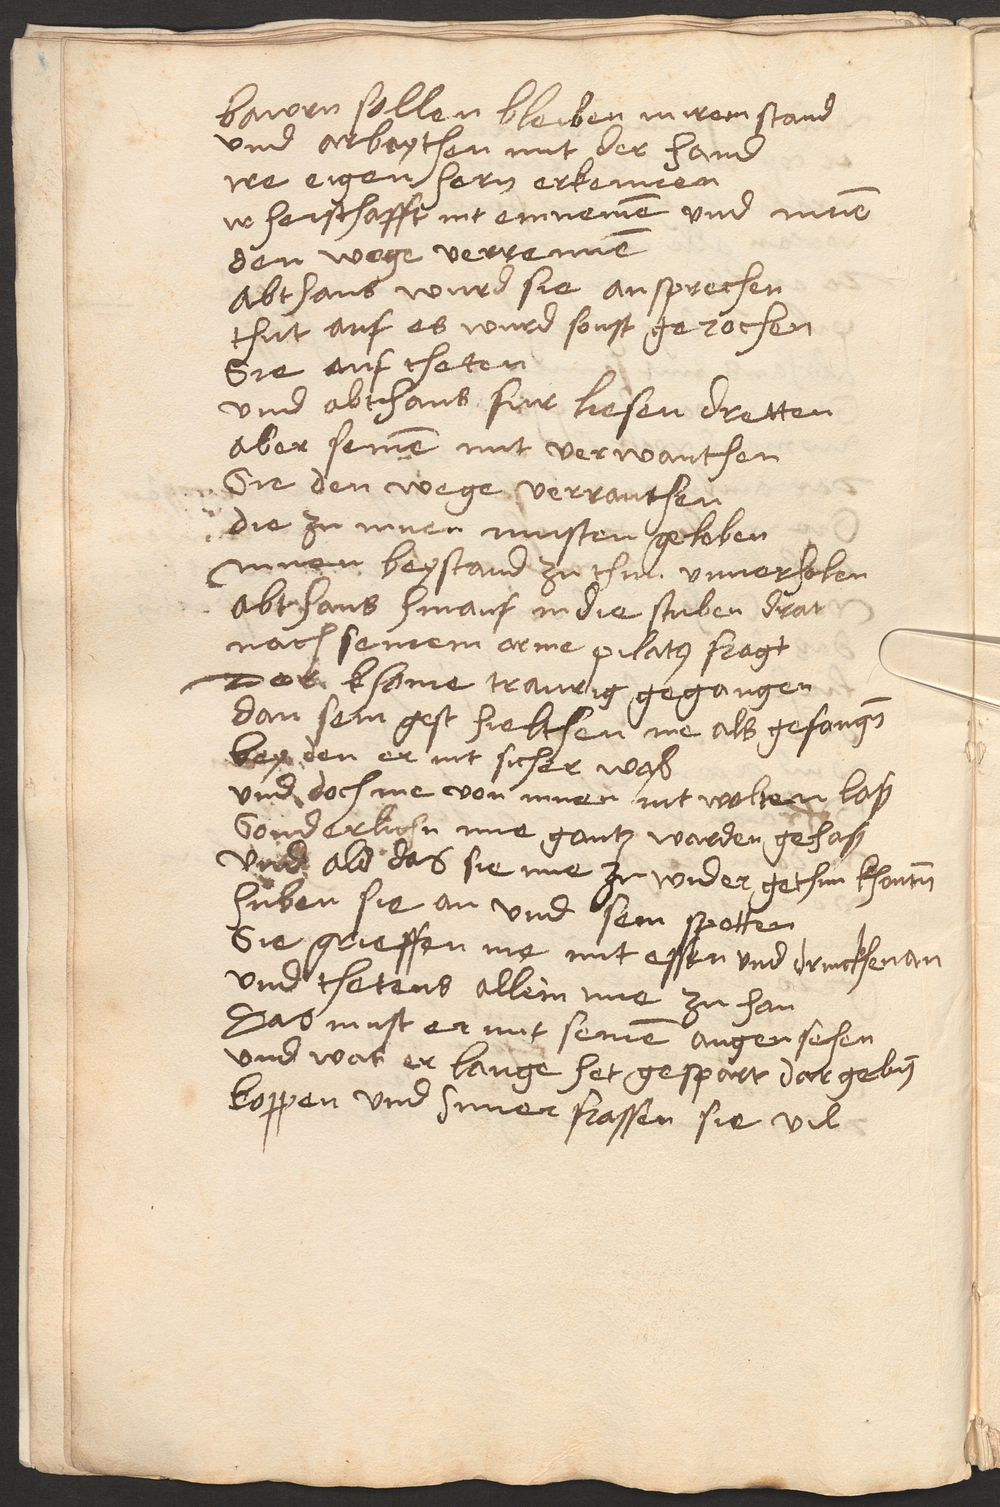 bawrn sollen bleiben in irem stand
vnd arbeythen mit der hand
ire eigen hern erkennen
ir herschafft nit einnemē vnd innē
den wege verrennē
Abt hans wurd sie ansprechen
thut auf es wurd sonst gerochen
Sie auf theten
vnd abt hans fur liesen dretten
aber seinē mit verwanthen
Sie den wege verranthen
die zu innen musten geloben
innen beystand zu thun vnuerholen
Abt hans hinauf in die stuben drat
nach seinem arme pilatus fragt
Der khame traurig gegangen
dan sein gest hielthen ine als gefangn̄
bey den er nit sicher waß
vnd doch ine von innen nit wolten laß
Sonderlichn ime gantz warden gehaß
vnd als das sie ime zu wider gethun khontn̄
huben sie an vnd sein spotten
Sie grieffen ine mit essen vnd drinckhen an
vnd thetens allein ime zu han
Das must er mit seinē augen sehen
vnd was er lange het gespart dar gebn̄
koppen vnd huner frassen sie vil